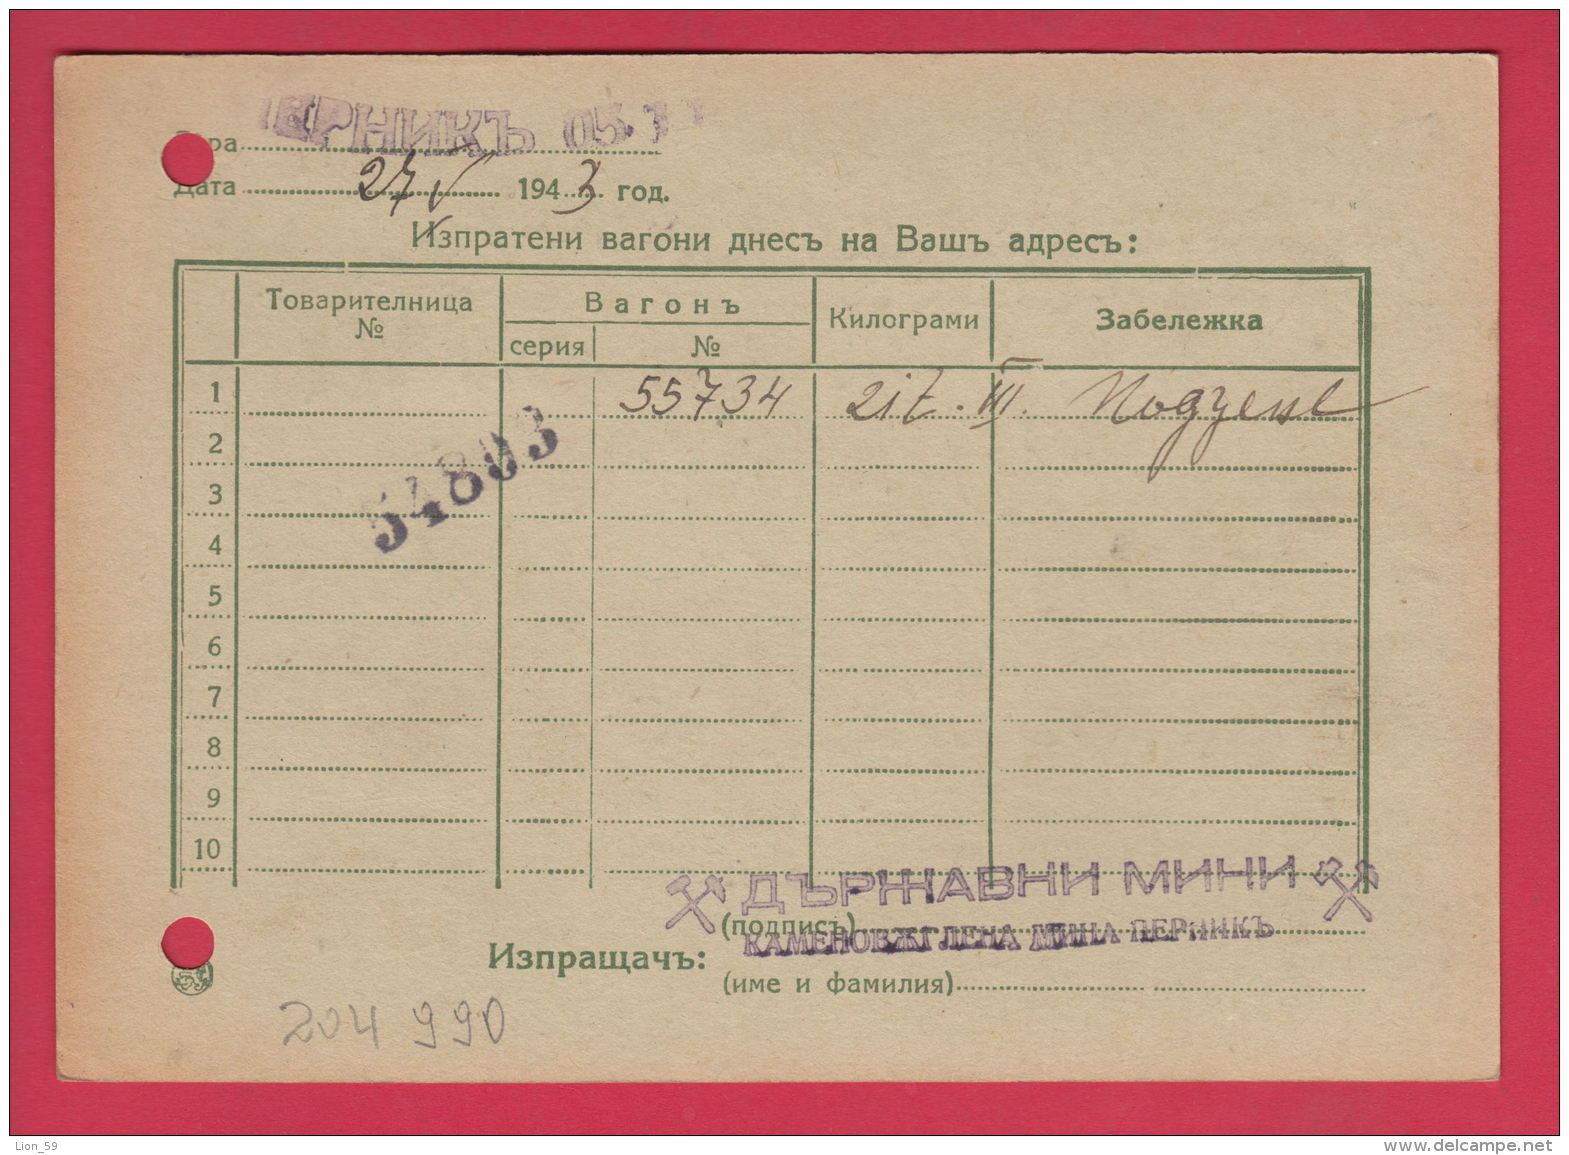 ПЕРНИКЪ 05.1
Гара
Дата 27 V 1943 год.
Изпратени вагони днесъ на Вашъ адресъ:
Товарителница № Вагонъ Килограми Забележка
серия №
1 55734 21t. III.
2
54803
3
4
5
6
7
8
9
10
ДЪРЖАВНИ МИНИ
(подписъ)
КАМЕНОВѪГЛЕНА МИНА ПЕРНИКЪ
Изпращачъ:
(име и фамилия)
204 990
Lion_59
www.delcampe.net